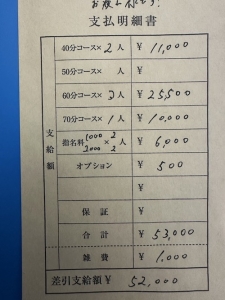 お疲れ様です!
支払明細書
40分コース×2人 ¥11,000
50分コース× 人 ¥
60分コース×3人 ¥25,500
70分コース×1人 ¥10,000
指名料 1000 2 2000 × 2 人 ¥6,000
オプション ¥500
¥
保証 ¥
合計 ¥53,000
雑費 ¥1,000
差引支給額¥ 52,000
支給額